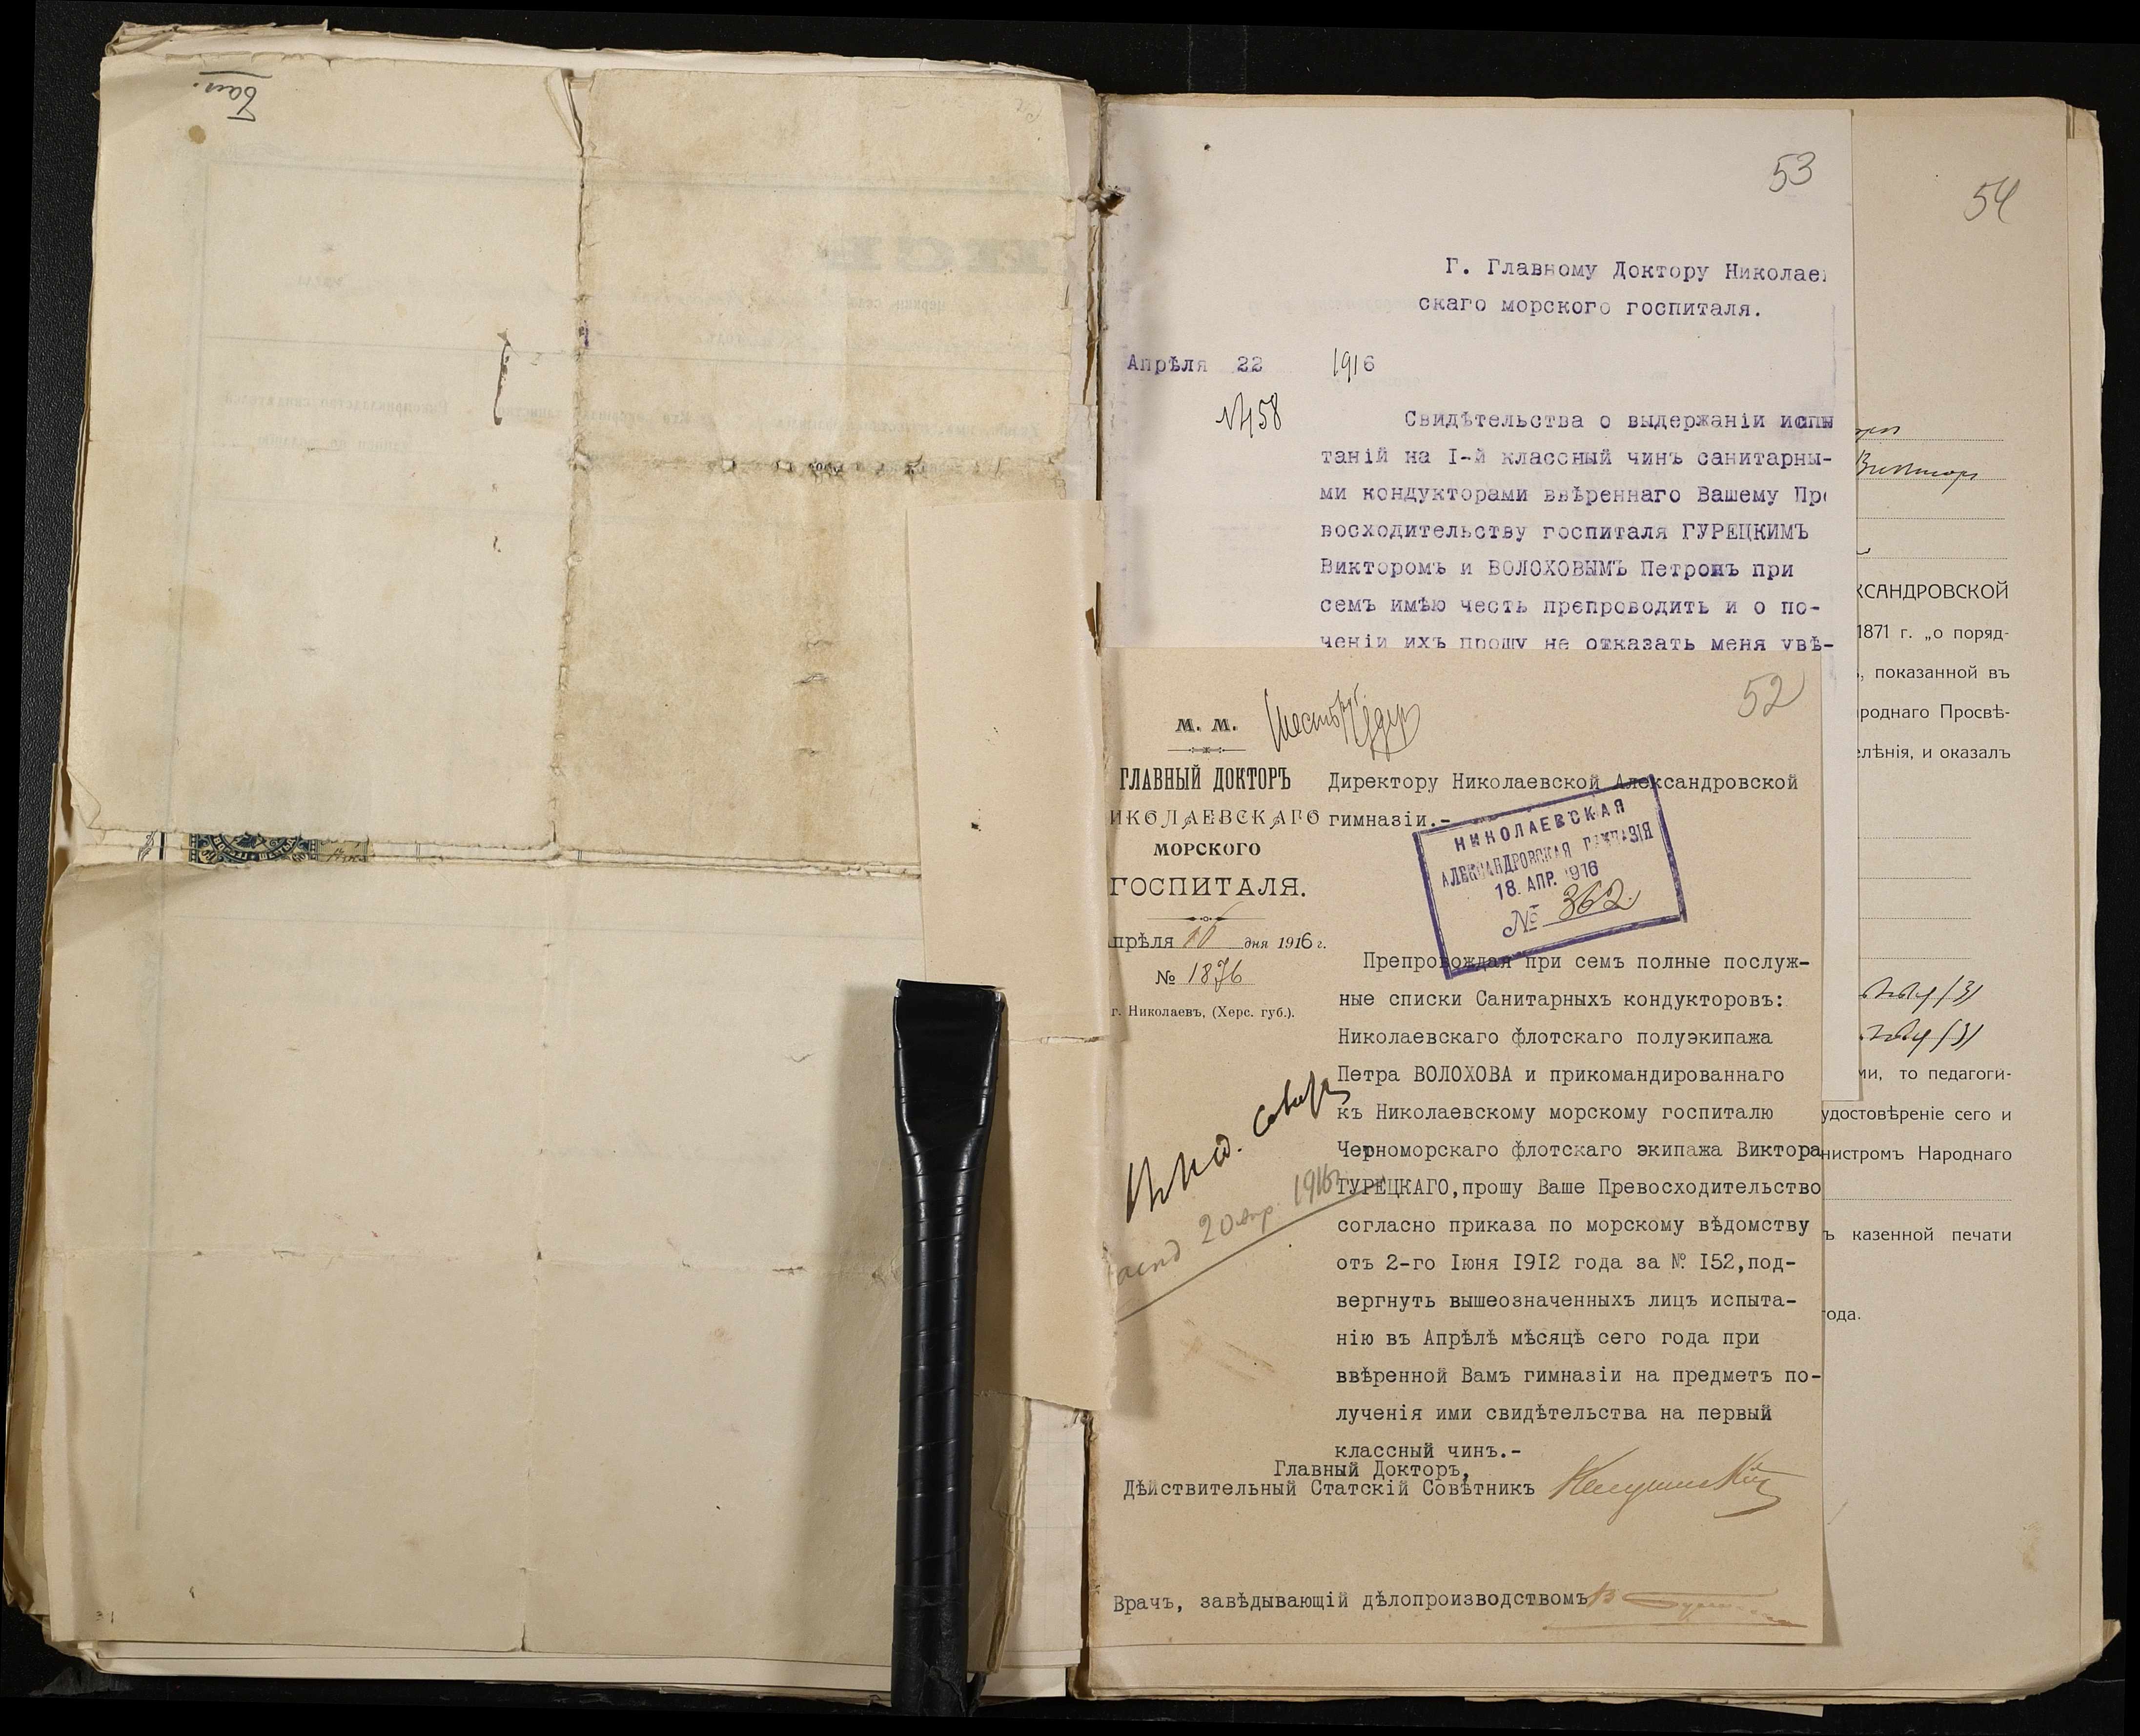 Бал.
53
Г. Главному Доктору Николаев
скаго морского госпиталя.
Апрѣля 22 1916
№458
Свидѣтельства о выдержаніи испы
таній на I-й классный чинъ санитарны-
ми кондукторами ввѣреннаго Вашему Пре
восходительству госпиталя ГУРЕЦКИМЪ
Викторомъ и ВОЛОХОВЫМЪ Петромъ при
семъ имѣю честь препроводить и о по-
ченіи ихъ прошу не отказать меня увѣ-
52
М. М.
ГЛАВНЫЙ ДОКТОРЪ
ИКОЛАЕВСКАГО
МОРСКОГО
ГОСПИТАЛЯ.
прѣля 10 дня 1916 г.
№ 1876
г. Николаевъ, (Херс. губ.).
Директору Николаевской Александровской
гимназіи.-
НИКОЛАЕВСКАЯ
АЛЕКСАНДРОВСКАЯ ГИМНАЗІЯ
18. АПР. 1916
№ 362.
Препровождая при семъ полные послуж-
ные списки Санитарныхъ кондукторовъ:
Николаевскаго флотскаго полуэкипажа
Петра ВОЛОХОВА и прикомандированнаго
къ Николаевскому морскому госпиталю
Черноморскаго флотскаго экипажа Виктора
ГУРЕЦКАГО,прошу Ваше Превосходительство
согласно приказа по морскому вѣдомству
отъ 2-го Іюня 1912 года за № 152,под-
вергнуть вышеозначенныхъ лицъ испыта-
нію въ Апрѣлѣ мѣсяцѣ сего года при
ввѣренной Вамъ гимназіи на предметъ по-
лученія ими свидѣтельства на первый
классный чинъ.-
Главный Докторъ,
Дѣйствительный Статскій Совѣтникъ
Врачъ, завѣдывающій дѣлопроизводствомъ
20 апр. 1916
54
Викторъ
КСАНДРОВСКОЙ
1871 г. „о поряд-
, показанной въ
роднаго Просвѣ-
елѣнія, и оказалъ
(3)
(3)
ми, то педагоги-
удостовѣреніе сего и
нистромъ Народнаго
ъ казенной печати
ода.